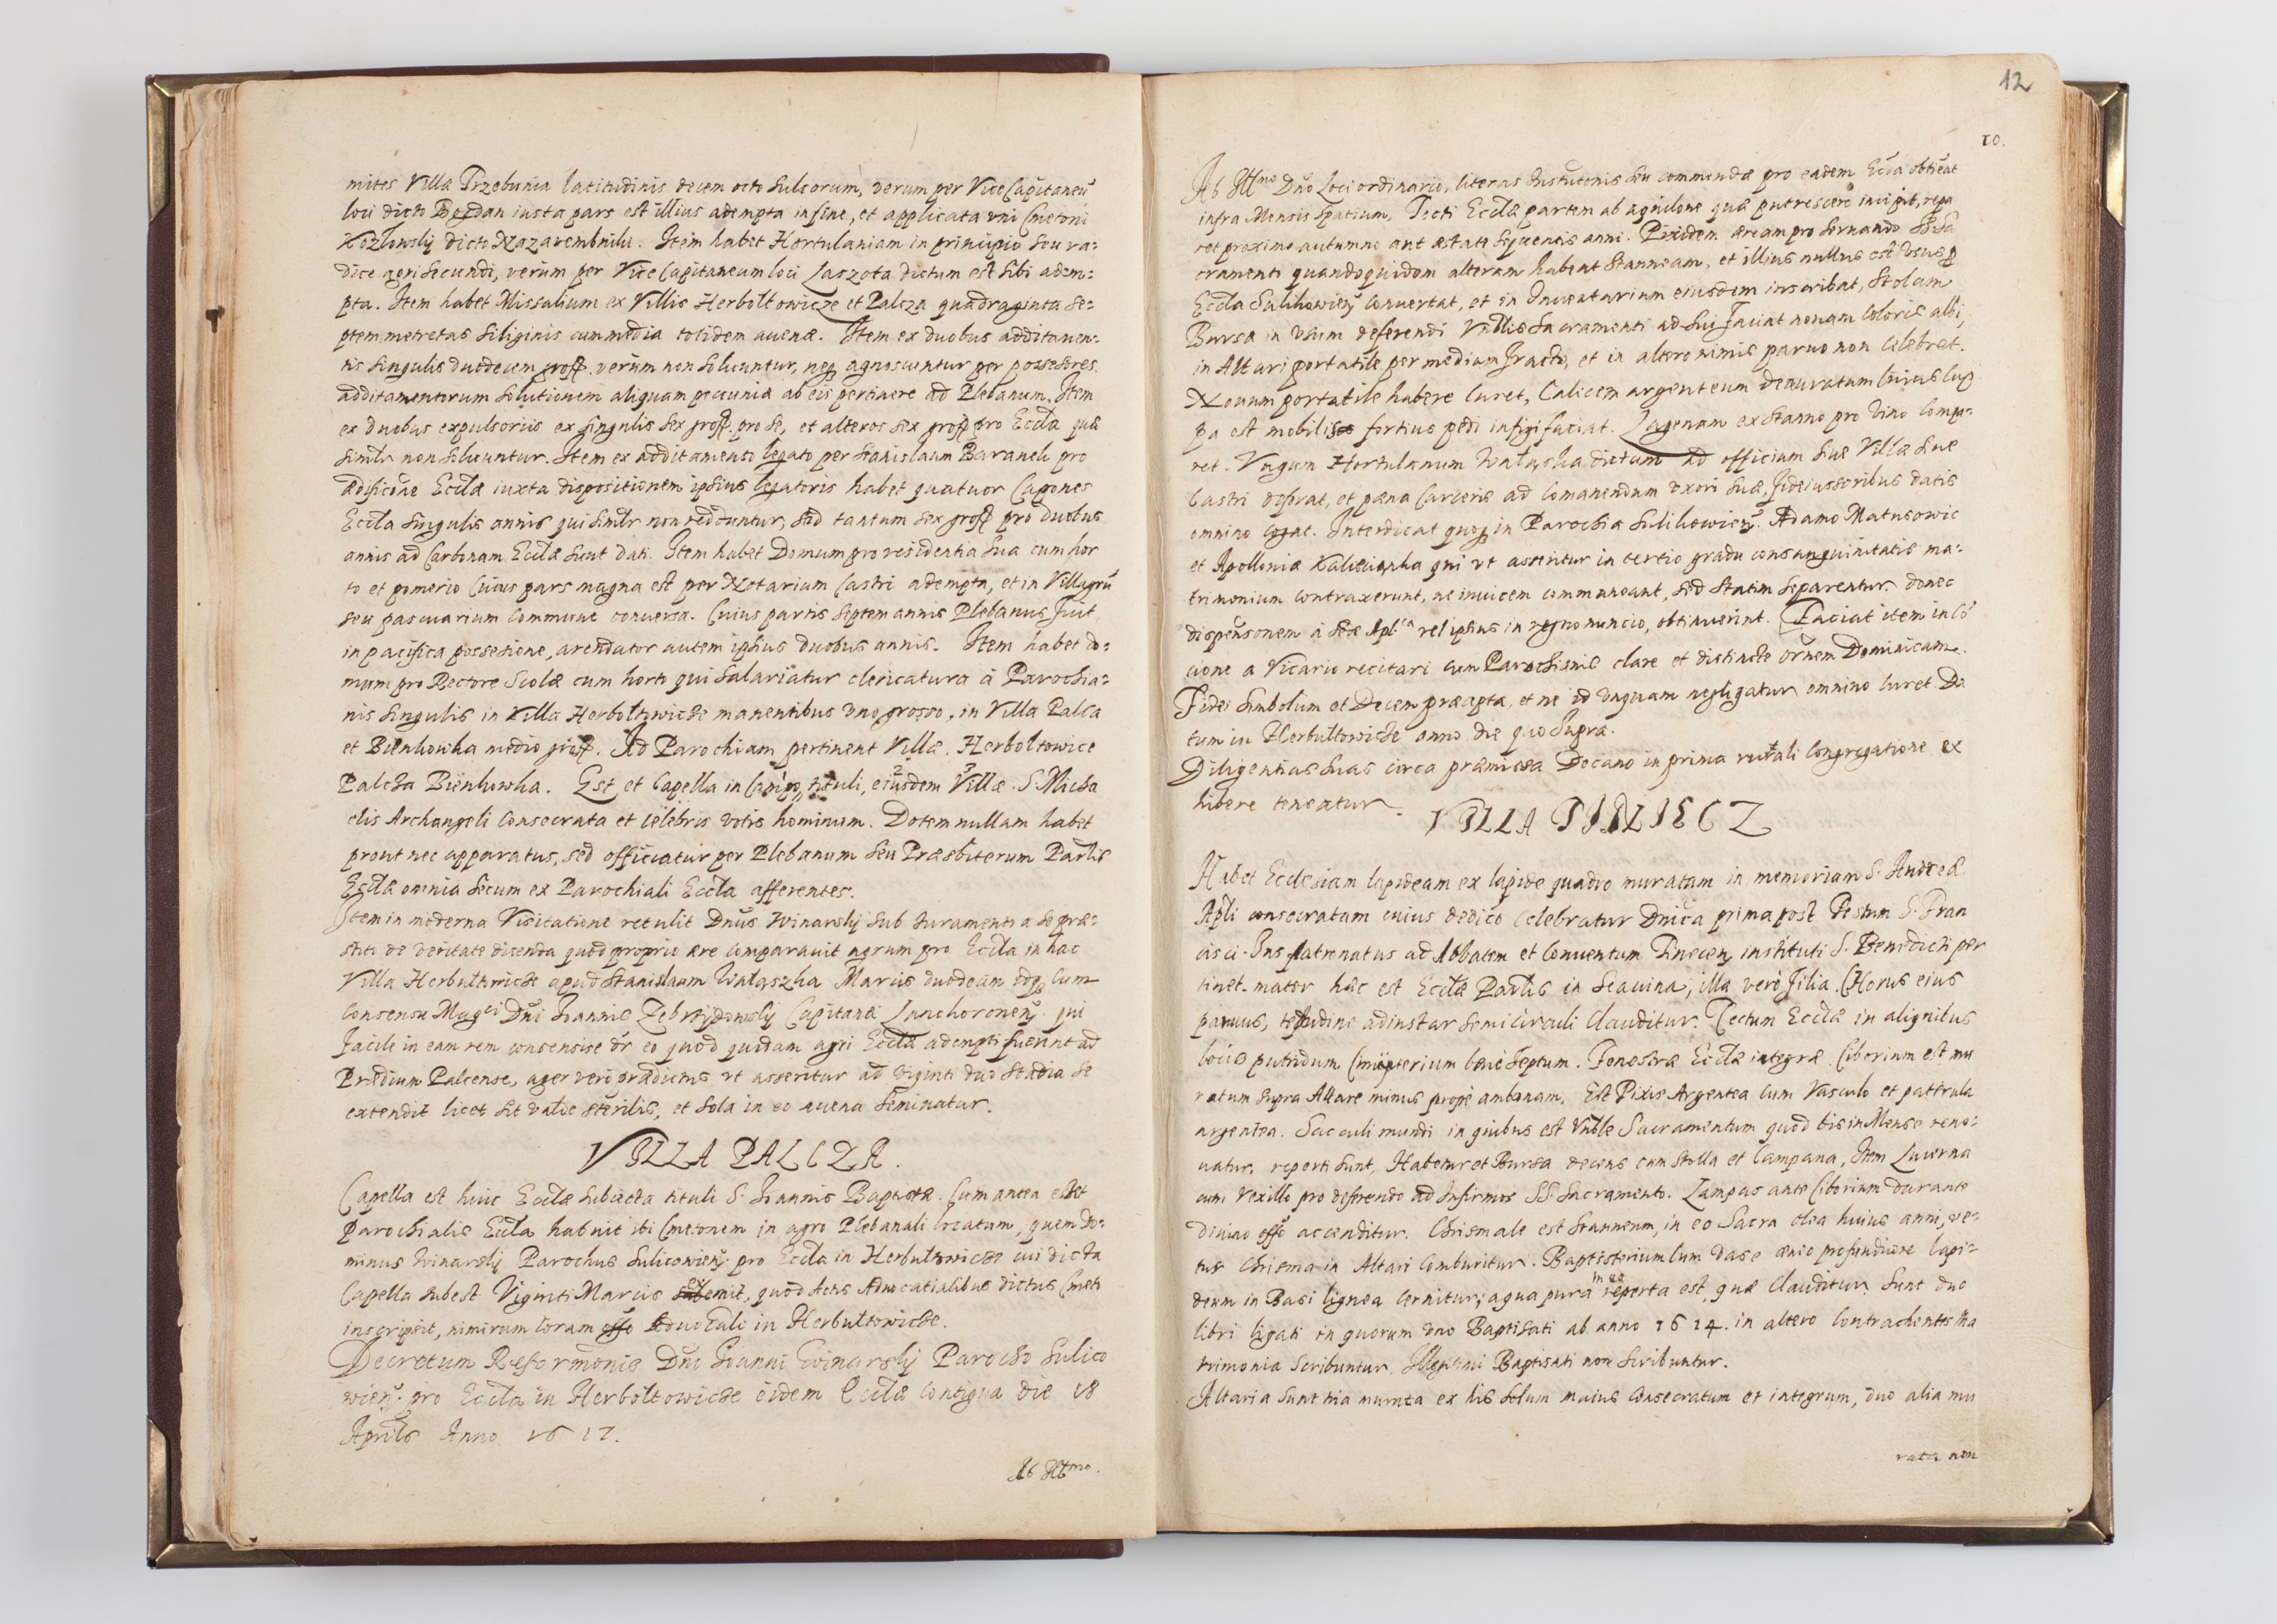 mites Villæ Trzebunia latitudinis decem octo sulcorum, verum per ViceCapitaneū
loci dicto Bogdan iusta pars est illius adempta in fine, et applicata vni Cmetoni
Kozłowskÿ dicto Nazarembniku. Item habet Hortulaniam in principio seu ra=
dice agri secundi, verùm per ViceCapitaneum loci Laszota dictum est sibi adem=
pta. Item habet Missalium ex Villis Herboltowicze et Palcza quadraginta se=
ptem metretas siliginis cum media totidem auenæ. Item ex duobus additamen=
tis singulis duodecim gross. verùm non soluuntur, neq; agnoscuntur per possessores
additamentorum solutionem aliquam pecuniæ ab eis pertinere ad Plebanum. Item
ex duobus expulsoriis ex singulis sex gross. pro se, et alteros sex gross. pro Eccla quæ
simlr non soluuntur. Item ex additamento legato per Stanislaum Baranek pro
ædificōne Ecclæ iuxta dispositionem ipsius legatoris habet quatuor Capones
Eccla singulis annis qui simlr non redduntur, sed tantum sex gross. pro duobus
annis ad Carbonam Ecclæ sunt dati. Item habet Domum pro residentia sua cum hor
to et pomerio Cuius pars magna est per Notarium Castri adempta, et in Villagrū
seu pascuarium commune conuersa. Cuius partis septem annis Plebanus fuit
in pacifica possesione, arendator autem ipsius duobus annis. Item habet do=
mum pro Rectore Scolæ cum horto qui salariatur clericatura à Parochia=
nis singulis in Villa Herboltowicze manentibus vno grosso, in Villa Palca
et Bienkowka medio gross. Ad Parochiam pertinent Villæ. Herboltowice
Palcza Bienkowka. Est et Capella in Campo tituli, eiusdem 2 Villæ 3 S. Micha
elis Archangeli Consecrata et celebris votis hominum. Dotem nullam habet
prout nec apparatus, sed officiatur per Plebanum seu Præsbiterum Parlis
Ecclæ omnia secum ex Parochiali Eccla afferentes.
Item in moderna Visitatione retulit Dnūs Winarskÿ sub Iuramento a se præ=
stito de veritate dicenda quod proprio ære comparauit agrum pro Eccla in hac
Villa Herbultowicze apud Stanislaum Wałaszka Marcis duodecim idq; cum
Consensu Magci Dni Ioannis Zebrzÿdowskÿ Capitanei Lanchoronen. qui
facile in eam rem consensisse dr eo quod quidam agri Ecclæ adempti fuerunt ad
Prædium Palcense, ager verò prædictus vt asseritur ad viginti duo stadia se
extendit licet sit valde sterilis, et sola in eo auena seminatur.
VILLA PALCZA.
Capella est huic Ecclæ subiecta tituli S. Ioannis Baptistæ. Cum antea esset
Parochialis Eccla habuit ibi Cmetonem in agro Plebanali locatum, quem Do=
minus Winarskÿ Parochus Sulicouien. pro Eccla in Herbultowicze cui dicta
Capella subest Viginti Marcis exemit, quod Actis Aduocatialibus dictus Cmeto
inscripsit, nimirum Coram offo Aduocali in Herbultowicze.
Decretum Reformōnis Dno Ioanni Winarskÿ Parocho Sulico
wien. pro Eccla in Herboltowicze eidem Ecclæ contigua die 18
Aprilis Anno 1617.
Ab Illmo.
12
10.
Ab Illmo Dno Loci ordinario, literas Institutōnis seu commendæ pro eadem Eccla obtineat
infra Mensis spatium, Tecti Ecclæ partem ab aquilone quæ putrescere incipit, repa
ret proximo autumno aut æstate sequentis anni. Pixidem æream pro seruando SS. Sa
cramento quandoquidem alteram habeat stanneam, et illius nullus est vsus p
Eccla Sulikowien. conuertat, et in Inuentarium eiusdem inscribat, Stolam
Bursæ in vsum deferendi Vnblis Sacramenti adsui faciat nouam Coloris albi,
in Altari portatile per medium fracto, et in altero nimis paruo non celebret.
Nouum portatile habere curet, Calicem argenteum deauratum cuius cup
pa est mobilis fortius pedi infigi faciat. Lagenam ex stanno pro vino compa=
ret. Vagum Hortulanum Wałaska dictum ad officium suæ Villæ siue
Castri deferat, et pæna Carceris ad Comanendum vxori suæ, fideiussoribus datis
omnino cogat. Interdicat quoq; in Parochia Sulikowien. Adamo Matusowic
et Apolloniæ Kalicianka qui vt asseritur in tertio gradu consanguinitatis ma=
trimonium contraxerunt, ne inuicem commaneant, sed statim separentur. donec
dispensonem à Sede Aplca vel ipsius in regno nuncio, obtinuerint. Faciat item in Co
cione a Vicario recitari cum Parochianis clare et distincte Ornem Dominicam.
Fidei Simbolum et Decem præcepta, et ne id vnquam negligatur omnino curet. Da
tum in Herbultowicze anno die quo supra.
Diligentias suas circa præmissa Decano in prima rurali Congregatione ex
hibere teneatur.
VILLA TINIECZ
Habet Ecclesiam lapideam ex lapide quadro muratam in memoriam S. Andreæ
Apli consecratam cuius dedico celebratur Dnica prima post Festum S. Fran
cisci. Ius Patronatus ad Abbatem et Conuentum Tinecen. instituti S. Benedicti per
tinet. mater hæc est Ecclæ Parlis in Scauina, illa verò filia. Chorus eius
paruus, testudine ad instar semicirculi Clauditur. Tectum Ecclæ in aliquibus
locis putridum Cmiterium benè septum. Fenestræ Ecclæ integræ. Ciborium est mu
ratum supra Altare minus propè ambonam. Est Pixis Argentea cum Vasculo et patinula
argentea. Sacculi mundi in quibus est Vnble Sacramentum quod bis in Mense reno=
uatur, reperti sunt, Habetur et Bursa decens cum Stolla et Campana, Item Lucerna
cum vexillo pro deferendo ad Infirmos SS. Sacramento. Lampas ante Ciborium durante
diuino offo accenditur. Chrismale est stanneum, in eo Sacra olea huius anni, ve=
tus Chrisma in Altari Comburitur. Baptisterium cum vase æneo profundiore lapi=
deum in Basi lignea cernitur; aqua pura in eo reperta est, quæ Clauditur. Sunt duo
libri ligati in quorum vno Baptisati ab anno 1614. in altero Contrachentes Ma
trimonia scribuntur. Illegitimi Baptisati non scribuntur.
Altaria sunt tria murata ex his solum maius Consecratum et integrum, duo alia mu
rata non